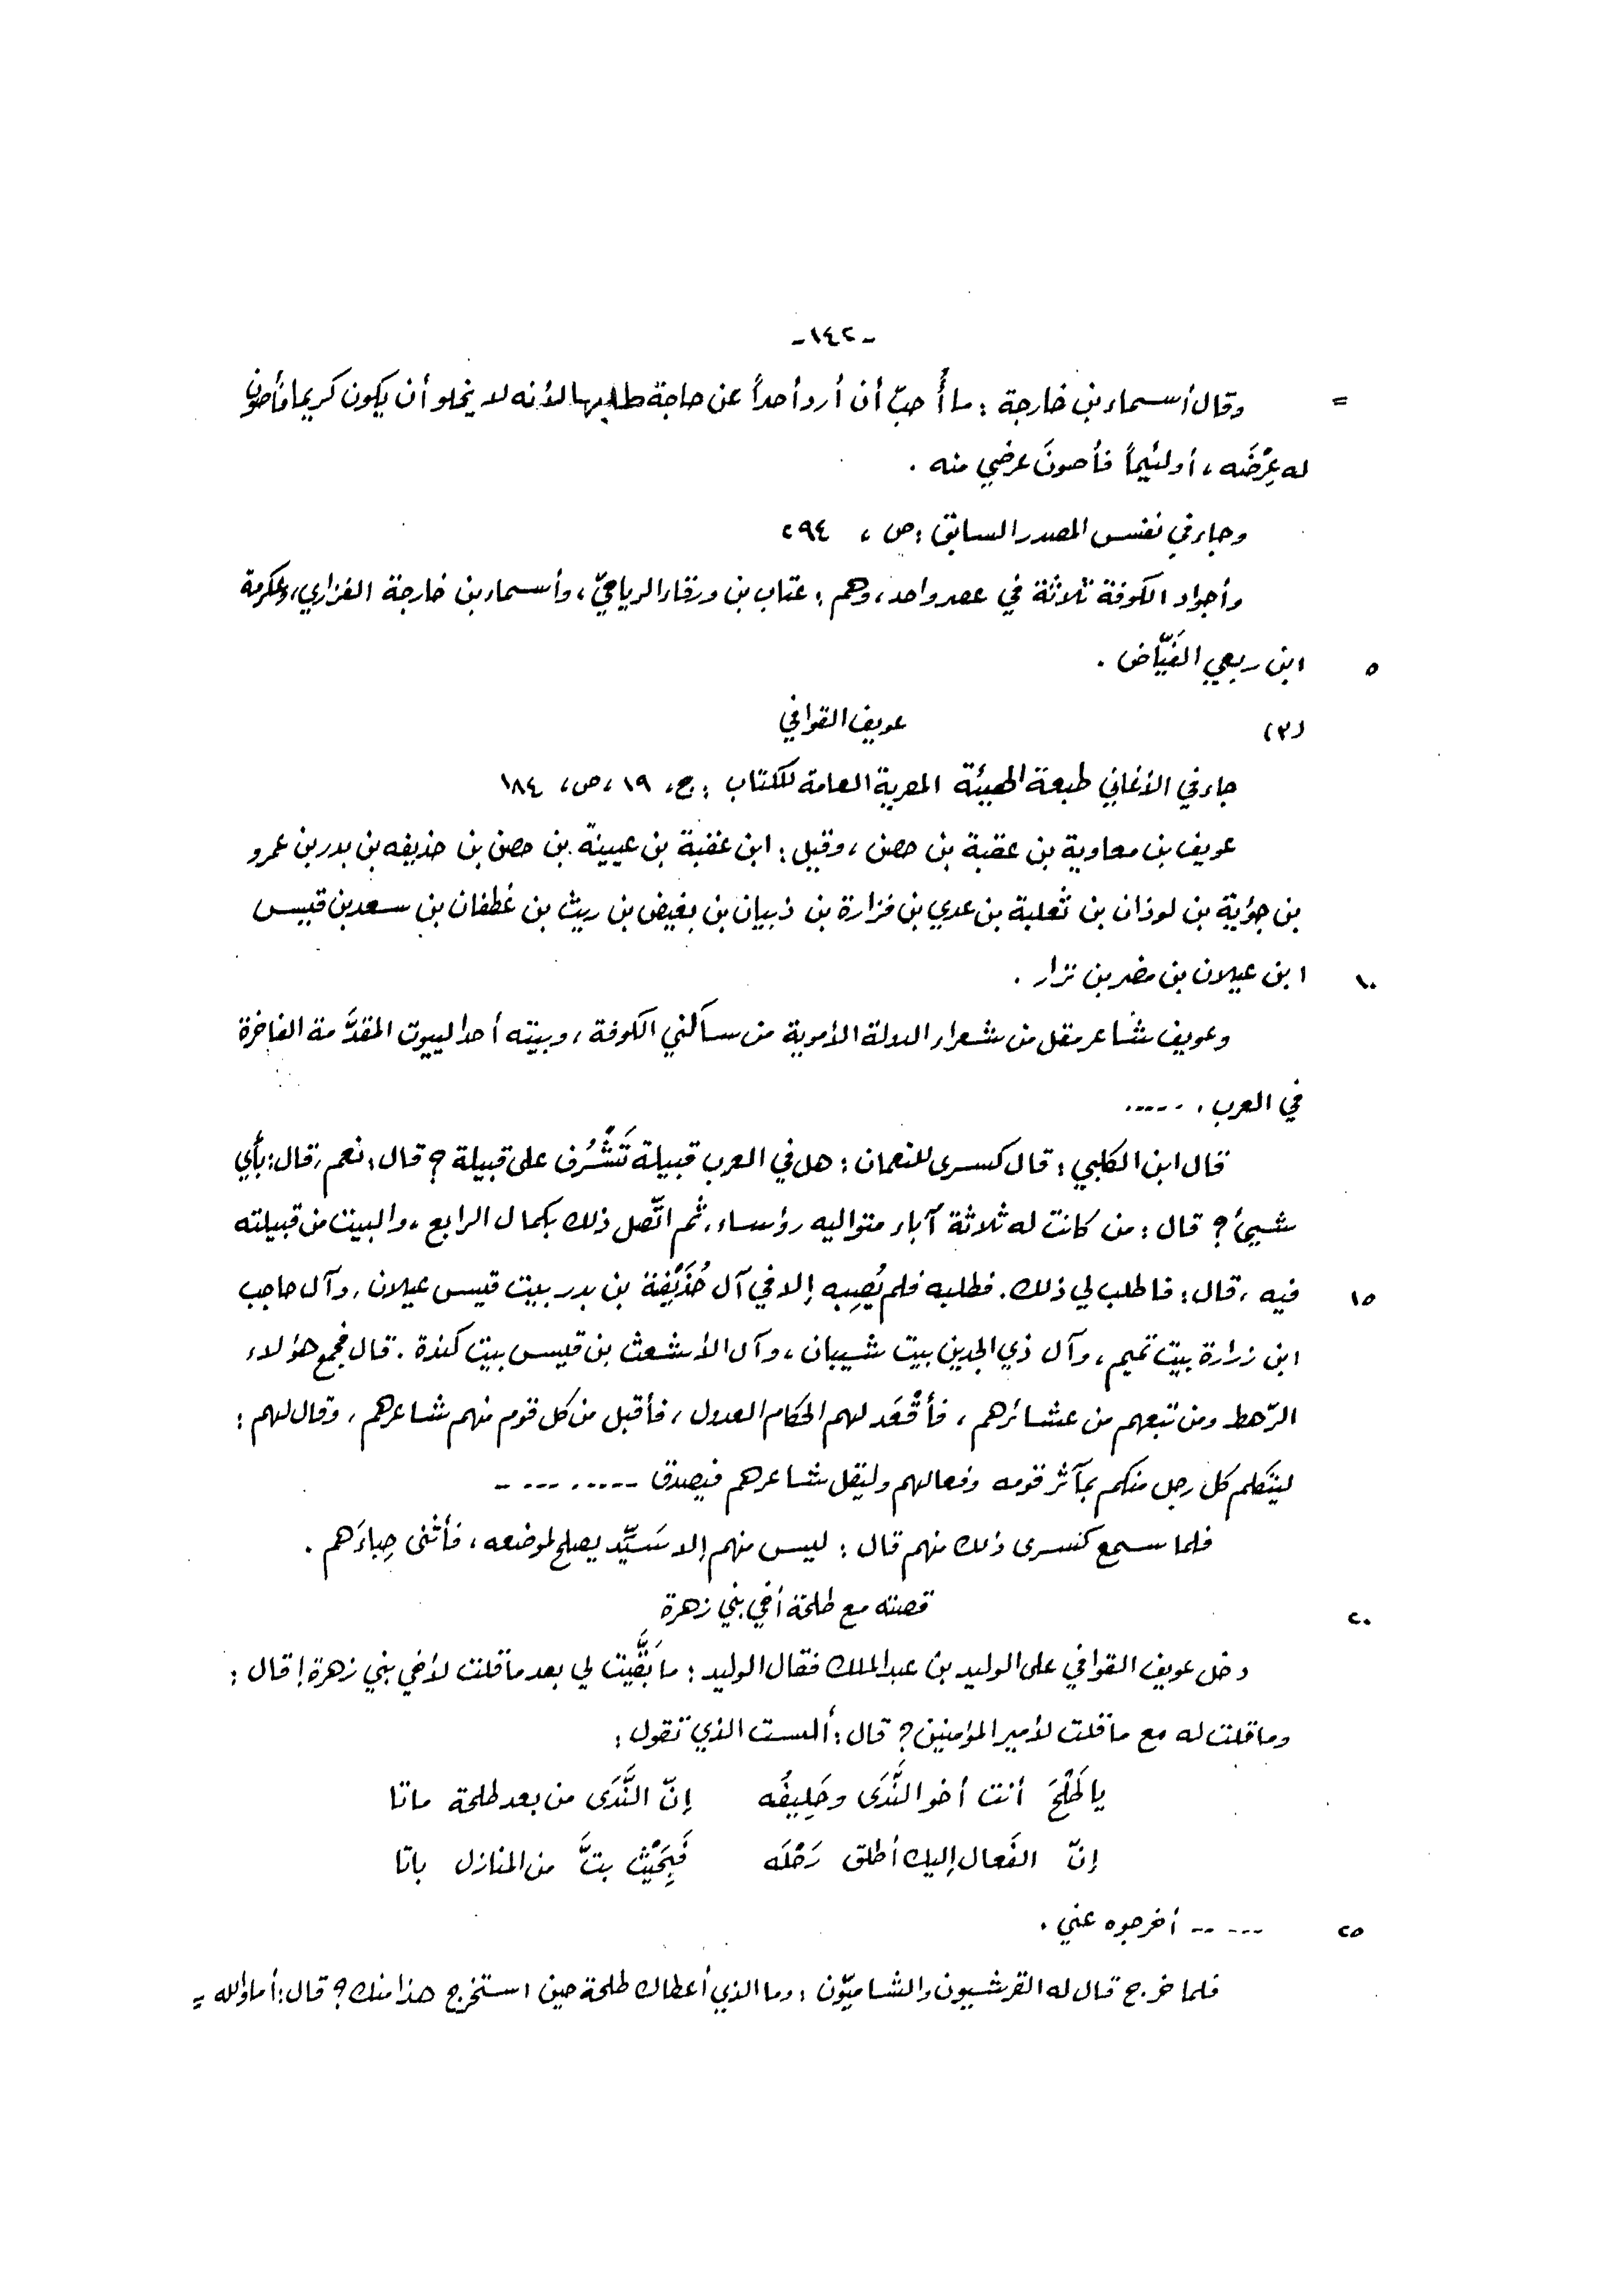 -١٤٢-
= وقال أسماء بن خارجة : ما أُحبّ أن أرد أحداً عن حاجة طلبها لأنه لا يخلو أن يكون كريما فأصون
له عِرْضَه ، أو لئيماً فأصونَ عرضي منه .
وجاء في نفس المصدر السابق : ص ، ٢٩٤
وأجواد الكوفة ثلاثة في عصر واحد ، وهم : عتاب بن ورقاء الرياحيّ ، وأسماء بن خارجة الفزاري ، وعكرمة
٥ ابن ربعي الفَيّاض .
(٢) عويف القوافي
جاء في الأغاني طبعة الهيئة المصرية العامة للكتاب : ج ، ١٩ ، ص ، ١٨٤
عويف بن معاوية بن عقبة بن حصن ، وقيل : ابن عقبة بن عيينة بن حصن بن حذيفه بن بدر بن عمرو
بن جؤية بن لوذان بن ثعلبة بن عدي بن فزارة بن ذبيان بن بغيض بن ريث بن غطفان بن سعد بن قيس
١٠ ابن عيلان بن مضر بن نزار .
وعويف شاعر مقل من شعراء الدولة الأموية من ساكني الكوفة ، وبيته أحد البيوت المقدَّمة الفاخرة
في العرب . .....
قال ابن الكلبي : قال كسرى للنعمان : هل في العرب قبيلة تَشْرُف على قبيلة ؟ قال : نعم ، قال : بأي
شيئ ؟ قال : من كانت له ثلاثة آباء متواليه رؤساء ، ثم اتّصل ذلك بكمال الرابع ، والبيت من قبيلته
١٥ فيه ، قال : فاطلب لي ذلك . فطلبه فلم يُصِبه إلا في آل حُذَيْفة بن بدر بيت قيس عيلان ، وآل حاجب
ابن زرارة بيت تميم ، وآل ذي الجدين بيت شيبان ، وآل الأشعث بن قيس بيت كندة . قال فجمع هؤلاء
الرّهط ومن تبعهم من عشائرهم ، فأقْعَد لهم الحكام العدول ، فأقبل من كل قوم منهم شاعرهم ، وقال لهم :
ليتكلم كل رجل منكم بمآثر قومه وفعالهم وليقل شاعرهم فيصدق .........
فلما سمع كسرى ذلك منهم قال : ليس منهم إلا سَيِّد يصلح لموضعه ، فأثنى حِباءَهم .
٢٠ قصته مع طلحة أخي بني زهرة
دخل عويف القوافي على الوليد بن عبد الملك فقال الوليد : ما بَقَّيت لي بعد ما قلت لأخي بني زهرة ! قال :
وما قلت له مع ما قلت لأمير المؤمنين ؟ قال : ألست الذي تقول :
يا طَلْحَ أنت أخو النَّدَى وحَلِيفُه إنّ النَّدَى من بعد طلحة ماتا
إنّ الفَعال إليك أطلق رَحْلَه فَبِحَيْث بتَّ من المنازل باتا
٢٥ ..... أخرجوه عني .
فلما خرج قال له القرشيون والشاميّون : وما الذي أعطاك طلحة حين استخرج هذا منك ؟ قال : أما والله =